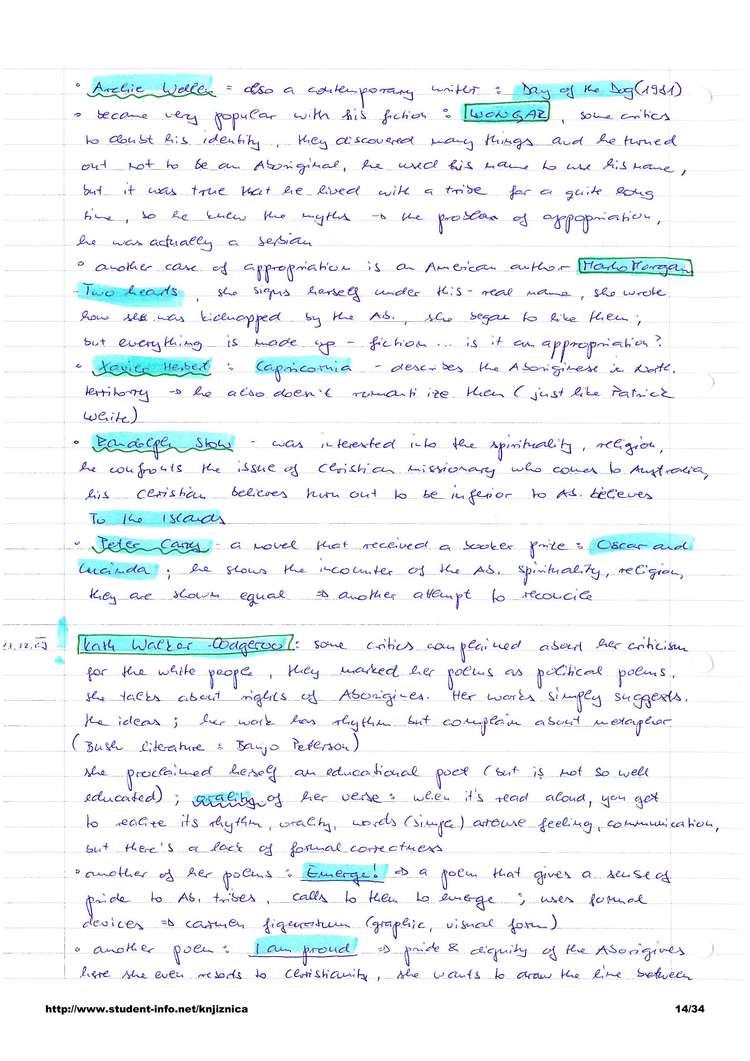 ° Archie Weller = also a contemporary writer : Day of the Dog (1981)
° became very popular with his fiction : WONGAR, some critics
to doubt his identity, they discovered many things and he turned
out not to be an Aboriginal, he used his name to use his name,
but it was true that he lived with a tribe for a quite long
time, so he knew the myths → the problem of appopriation,
he was actually a serbian
° another case of appropriation is an American author Marlo Morgan
Two hearts, she signs herself under this - real name, she wrote
how she was kidnapped by the Ab., she began to like them ;
but everything is made up - fiction ... is it an appropriation?
° Xavier Herbert : Capricornia - describes the Aboriginese in North.
territorry → he also doesn't romantize them (just like Patrick
White)
° Randolph Stow - was interested into the spirituality, religion,
he confronts the issue of Christian missionary who comes to Australia,
his Christian believes turn out to be inferior to Ab. believes
To the Islands
° Peter Carey - a novel that received a booker prize : Oscar and
Lucinda ; he shows the incounter of the Ab. spirituality, religion,
they are shown equal ⇒ another attempt to reconcile
Kath Walker - Oodgeroo : some critics complained about her criticism
for the white people, they marked her poems as political poems.
She talks about rights of Aborigines. Her works simply suggests.
the ideas ; her work has rhythm but complain about metaphor
(Bush literature : Banjo Peterson)
she proclaimed herself an educational poet (but is not so well
educated) ; orality of her verse : when it's read aloud, you get
to realize its rhythm, orality, words (simple) arouse feeling, communication,
but there's a lack of formal correctness
° another of her poems : Emerge! ⇒ a poem that gives a sense of
pride to Ab. tribes, calls to them to emerge ; uses formal
devices ⇒ carmen figuratum (graphic, visual form)
° another poem : I am proud ⇒ pride & dignity of the Aborigines
here she even resorts to Christianity, she wants to draw the line between
http://www.student-info.net/knjiznica 14/34